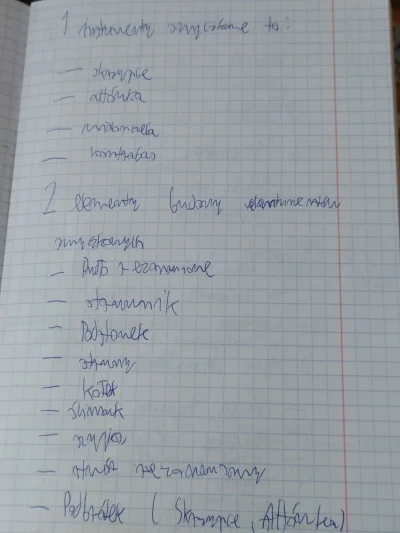 1 instrumenty smyczkowe to:
— skrzypce
— altówka
— wiolonczela
— kontrabas
2 elementy budowy instrumentów
smyczkowych
—
— strunnik
— Podstawek
— struny
— Kołek
— Ślimak
— szyjka
—
— Podbródek ( Skrzypce, Altówka)